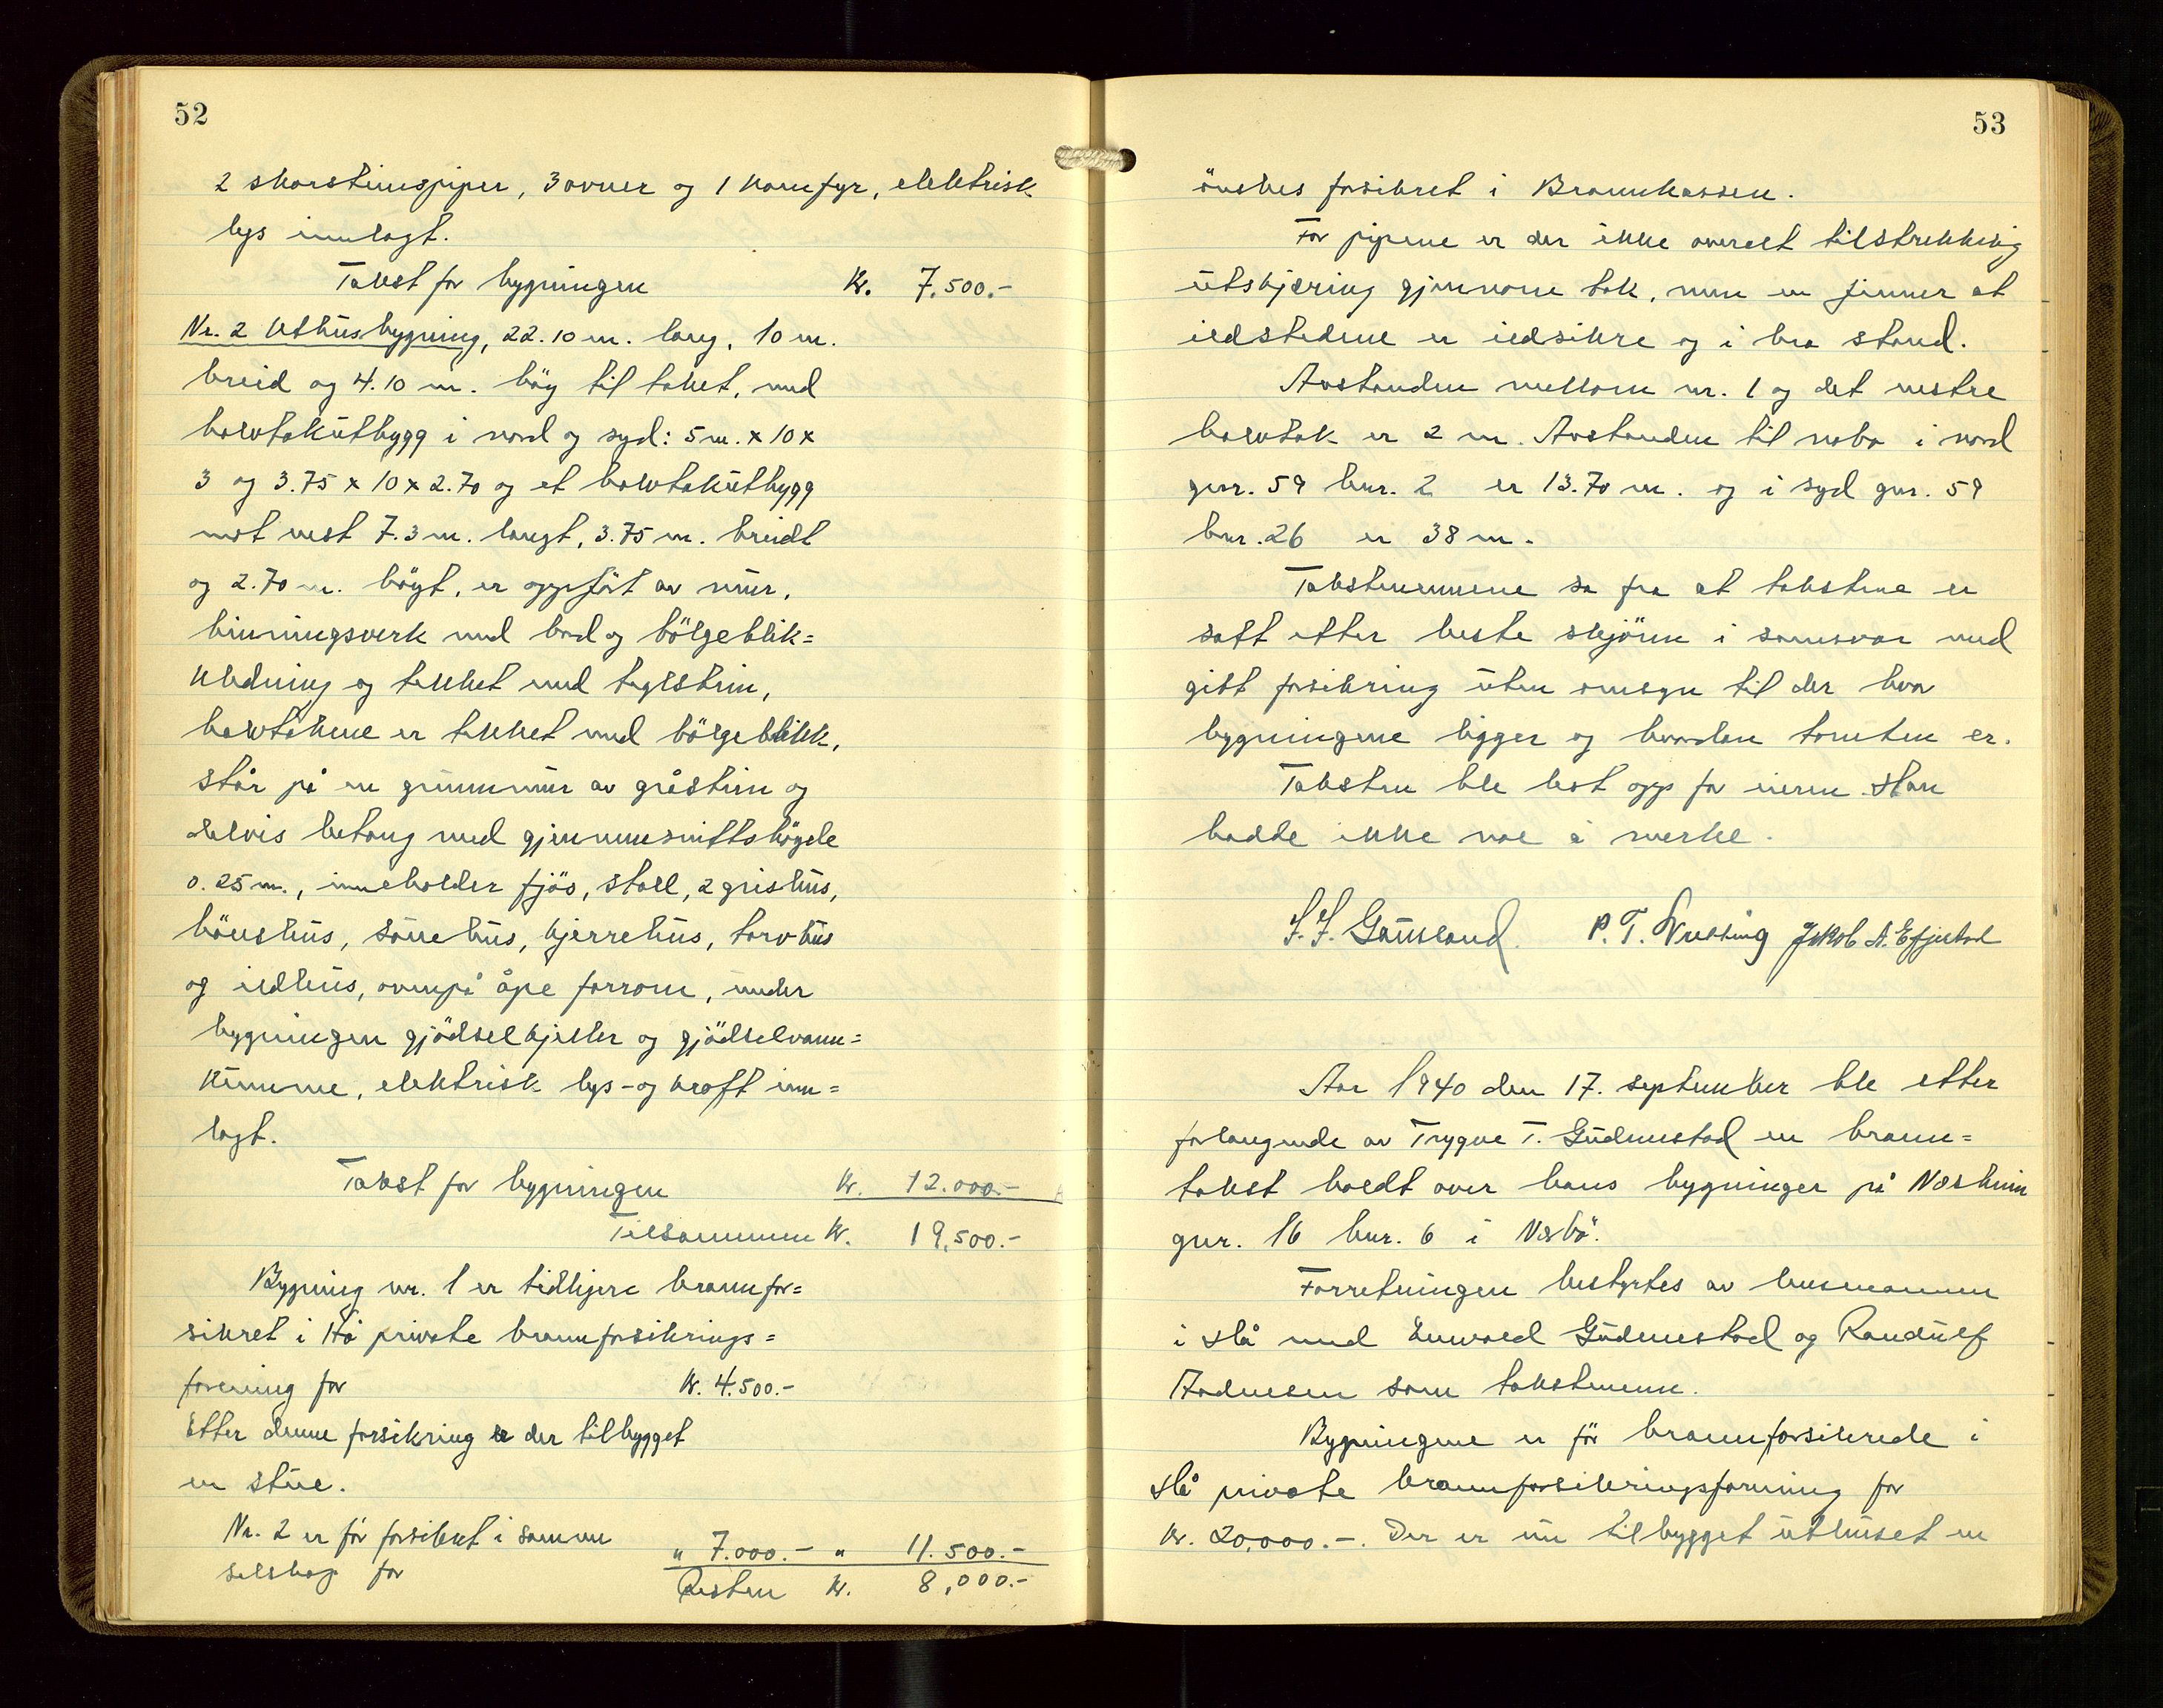 52
2 skorsteinspiper, 3 ovner og 1 komfyr, elektrisk
lys innlagt.
Takst for bygningen Kr. 7.500.-
Nr. 2 Uthusbygning, 22.10 m. lang, 10 m.
breid og 4.10 m. høg til taket, med
halvtakutbygg i nord og syd: 5 m. x 10 x
3 og 3.75 x 10 x 2.70 og et halvtakutbygg
mot vest 7.3 m. langt, 3.75 m. breidt
og 2.70 m. högt, er oppfört av mur,
binningsverk med bord og bölgeblik=
kledning og tekket med teglstein,
halvtakene er tekket med bölgeblikk,
står på en grunnmur av gråstein og
delvis betong med gjennemsnittshögde
0.25 m., inneholder fjös, stall, 2 grishus,
hönshus, sauehus, kjerrehus, torvhus
og ildhus, ovenpå åpe forrom, under
bygningen gjödselkjeller og gjödselvann=
kumme, elektrisk lys- og kraft inn=
lagt.
Takst for bygningen Kr. 12.000.-
Tilsammen Kr. 19,500.-
Bygning nr. 1 er tidligere brannfor=
sikret i Hå private brannforsikrings=
forening for Kr. 4.500.-
Etter denne forsikring er der tilbygget
en stue.
Nr. 2 er för forsikret i samme
selskap for " 7.000.- " 11.500.-
Resten Kr. 8,000.-
53
önskes forsikret i Brannkassen.
For pipene er der ikke overalt tilstrekkelig
utskjæring gjennom tak, men en finner at
ildstedene er ildsikre og i bra stand.
Avstanden mellom nr. 1 og det vestre
halvtak er 2 m. Avstanden til nabo i nord
gnr. 59 bnr. 2 er 13.70 m. og i syd gnr. 59
bnr. 26 er 38 m.
Takstmennene sa fra at takstene er
satt etter beste skjönn i samsvar med
gitt forsikring uten omsyn til der hvor
bygningene ligger og hvordan tomten er.
Taksten ble lest opp for eieren. Han
hadde ikke noe å merke.
S. J. Gausland. P. T. Nesting Jakob A. Efjestad
Aar 1940 den 17. september ble etter
forlangende av Trygve T. Gudmestad en brann=
takst holdt over hans bygninger på Næsheim
gnr. 16 bnr. 6 i Nærbö.
Forretningen bestyrtes av lensmannen
i Hå med Enwald Gudmestad og Randulf
Aadnesen som takstmenn.
Bygningene er för brannforsikrede i
Hå private brannforsikringsforening for
Kr. 20,000.-. Der er nu tilbygget uthuset en